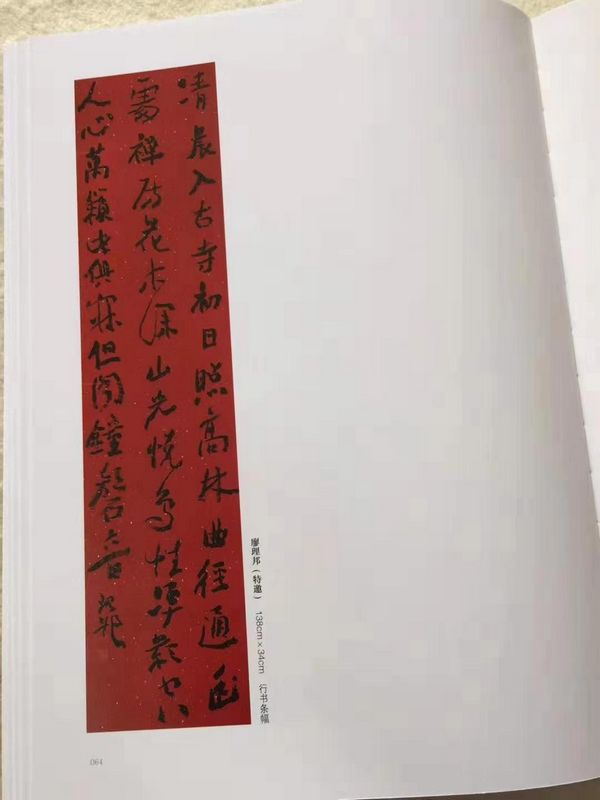 清晨入古寺初日照高林曲徑通幽
處禪房花木深山光悅鳥性潭影空
人心萬籟此俱寂但聞鐘磬音
廖理邦（特邀） 138cm×34cm 行书条幅
064